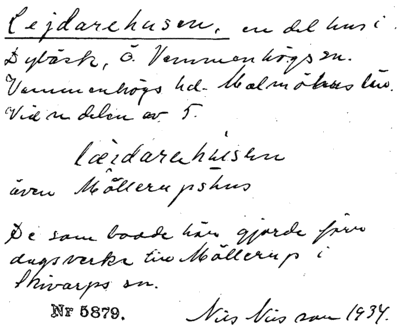 Lejdarehusen, en del hus i
Dybäck, Ö. Vemmenhögs sn.
Vemmenhögs hd. Malmöhus län.
Vid n delen av 5.
læjdarehúsen
även Möllerupshus
De som bodde här gjorde förr
dagsverke till Möllerup i
Skivarps sn.
Nr 5879.
Nils Nilsson 1934.